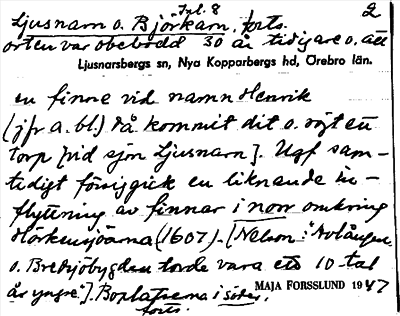 Jul. 8
Ljusnarn o. Björkarn, forts. 2
orten var obebodd 30 år tidigare o. att
Ljusnarsbergs sn, Nya Kopparbergs hd, Örebro län.
en finne vid namn Henrik
(jfr a. bl.) då kommit dit o. röjt ett
torp [vid sjön Ljusnarn]. Ugf sam-
tidigt försiggick en liknande in-
flyttning av finnar i norr omkring
Hörkensjöarna (1607). [Nelson: "Avlången
o. Bredsjöbygden torde vara ett 10-tal
år yngre"]. Boplatserna i söder,
MAJA FORSSLUND 1947
forts.